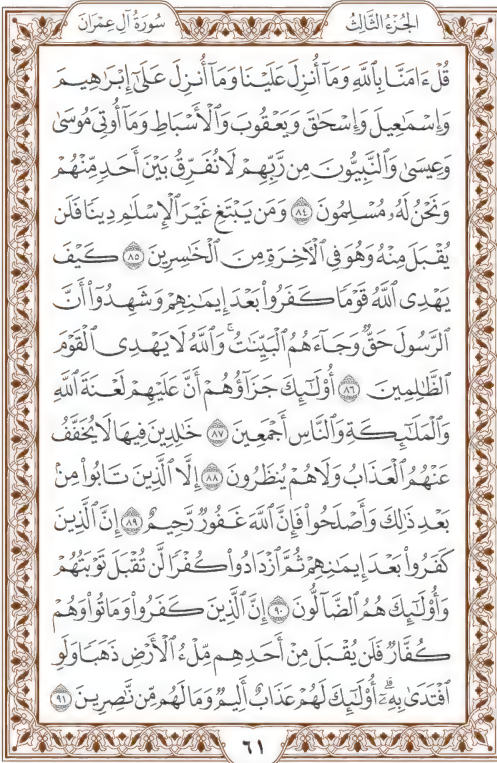 الجُزْءُ الثَّالِثُ سُورَةُ آلِ عِمْرَانَ
قُلْ ءَامَنَّا بِٱللَّهِ وَمَآ أُنزِلَ عَلَيْنَا وَمَآ أُنزِلَ عَلَىٰٓ إِبْرَٰهِيمَ
وَإِسْمَٰعِيلَ وَإِسْحَٰقَ وَيَعْقُوبَ وَٱلْأَسْبَاطِ وَمَآ أُوتِىَ مُوسَىٰ
وَعِيسَىٰ وَٱلنَّبِيُّونَ مِن رَّبِّهِمْ لَا نُفَرِّقُ بَيْنَ أَحَدٍ مِّنْهُمْ
وَنَحْنُ لَهُۥ مُسْلِمُونَ ٨٤ وَمَن يَبْتَغِ غَيْرَ ٱلْإِسْلَٰمِ دِينًا فَلَن
يُقْبَلَ مِنْهُ وَهُوَ فِى ٱلْأَخِرَةِ مِنَ ٱلْخَٰسِرِينَ ٨٥ كَيْفَ
يَهْدِى ٱللَّهُ قَوْمًا كَفَرُوا۟ بَعْدَ إِيمَٰنِهِمْ وَشَهِدُوٓا۟ أَنَّ
ٱلرَّسُولَ حَقٌّ وَجَآءَهُمُ ٱلْبَيِّنَٰتُ ۚ وَٱللَّهُ لَا يَهْدِى ٱلْقَوْمَ
ٱلظَّٰلِمِينَ ٨٦ أُو۟لَٰٓئِكَ جَزَآؤُهُمْ أَنَّ عَلَيْهِمْ لَعْنَةَ ٱللَّهِ
وَٱلْمَلَٰٓئِكَةِ وَٱلنَّاسِ أَجْمَعِينَ ٨٧ خَٰلِدِينَ فِيهَا لَا يُخَفَّفُ
عَنْهُمُ ٱلْعَذَابُ وَلَا هُمْ يُنظَرُونَ ٨٨ إِلَّا ٱلَّذِينَ تَابُوا۟ مِنۢ
بَعْدِ ذَٰلِكَ وَأَصْلَحُوا۟ فَإِنَّ ٱللَّهَ غَفُورٌ رَّحِيمٌ ٨٩ إِنَّ ٱلَّذِينَ
كَفَرُوا۟ بَعْدَ إِيمَٰنِهِمْ ثُمَّ ٱزْدَادُوا۟ كُفْرًا لَّن تُقْبَلَ تَوْبَتُهُمْ
وَأُو۟لَٰٓئِكَ هُمُ ٱلضَّآلُّونَ ٩٠ إِنَّ ٱلَّذِينَ كَفَرُوا۟ وَمَاتُوا۟ وَهُمْ
كُفَّارٌ فَلَن يُقْبَلَ مِنْ أَحَدِهِم مِّلْءُ ٱلْأَرْضِ ذَهَبًا وَلَوِ
ٱفْتَدَىٰ بِهِۦٓ ۗ أُو۟لَٰٓئِكَ لَهُمْ عَذَابٌ أَلِيمٌ وَمَا لَهُم مِّن نَّٰصِرِينَ ٩١
٦١